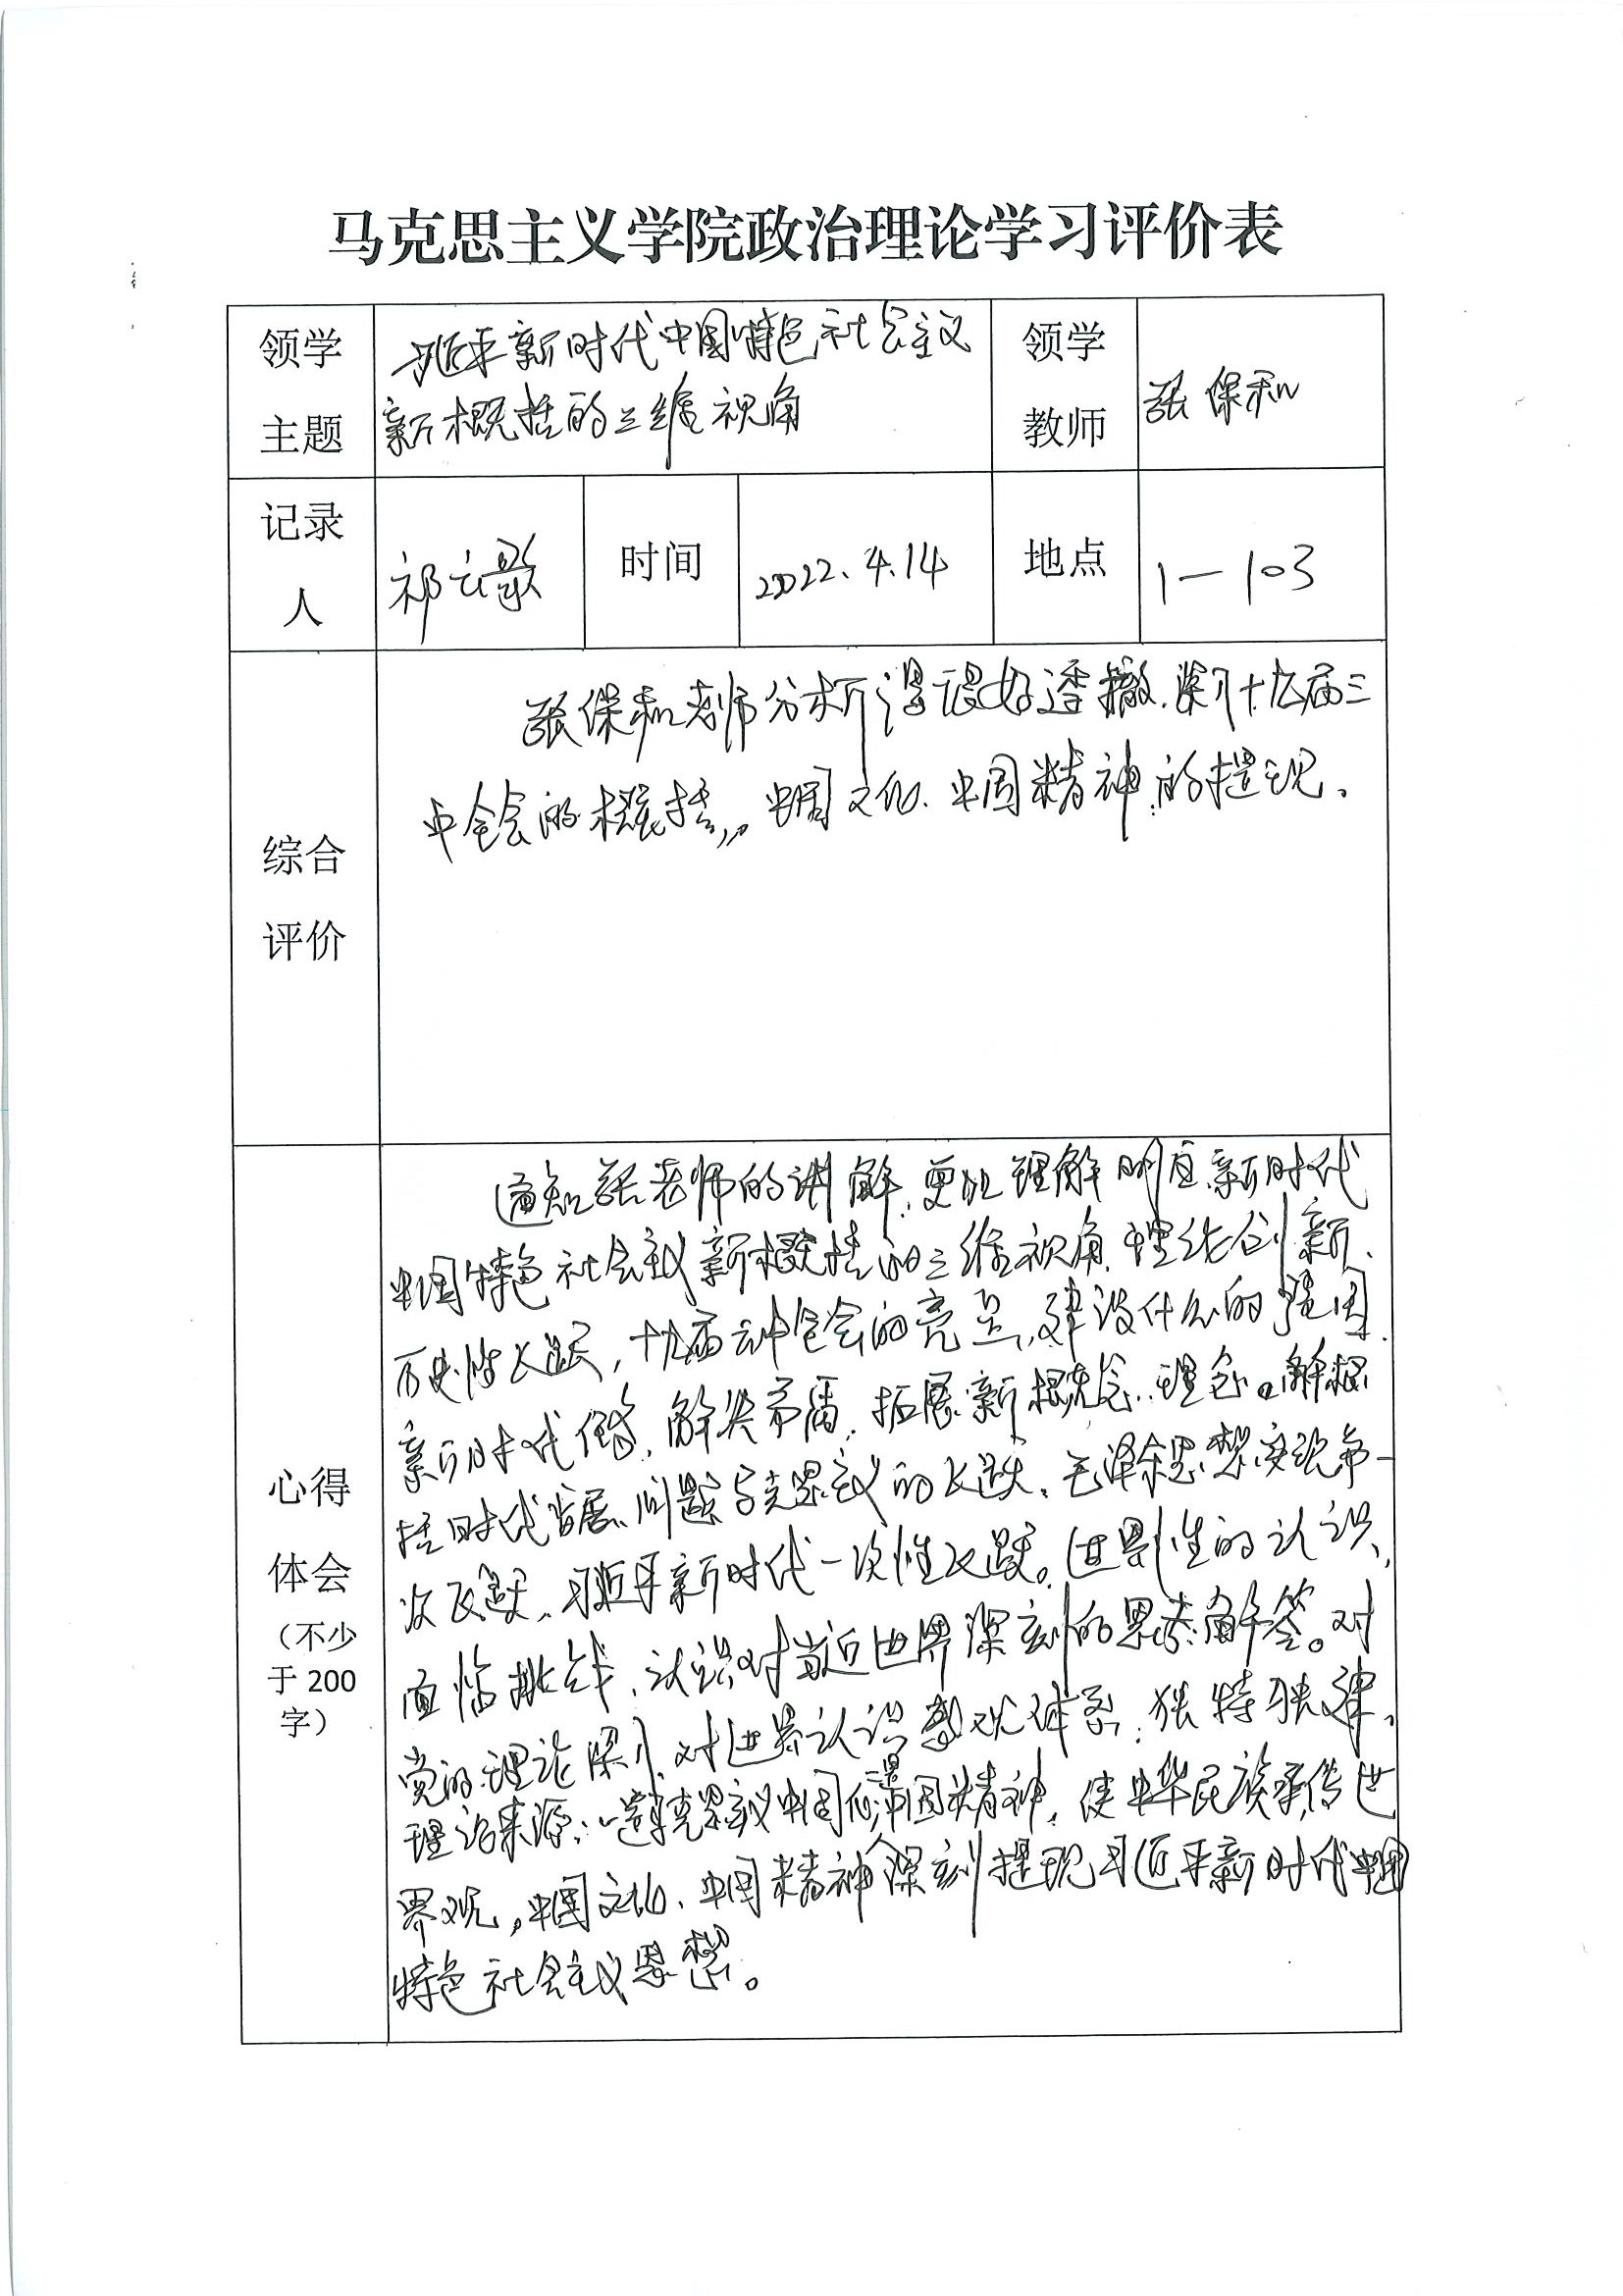 马克思主义学院政治理论学习评价表
领学主题
习近平新时代中国特色社会主义
新概括的三维视角
领学教师
张保和
记录人
祁云
时间
2022.4.14
地点
1—103
综合评价
张保和老师分析得很好透撤、深入十九届三
中全会的概括,,。中国文化、中国精神的提现.
心得体会
(不少于200字)
张老师的讲解,更 理解 新时代
中国特色社会主义新概括的三维视角,理论创新、
历史性飞跃,十九届六中全会的亮点,建设什么的强国
新时代 ,解决矛盾,拓展新概念、理念。解概
括时代发展、问题马克思主义的飞跃、毛泽东思想实现第一
次飞跃、习近平新时代一次性飞跃。世界性的认识、
面临挑战、认识对当近世界深刻的思考解答。对
党的理论深入、对世界认识 观体系、独特独建、
理论来源: 马克思主义中国化 中国精神,使中华民族承传世
界观,中国文化、中国精神深刻提现习近平新时代中国
特色社会主义思想。